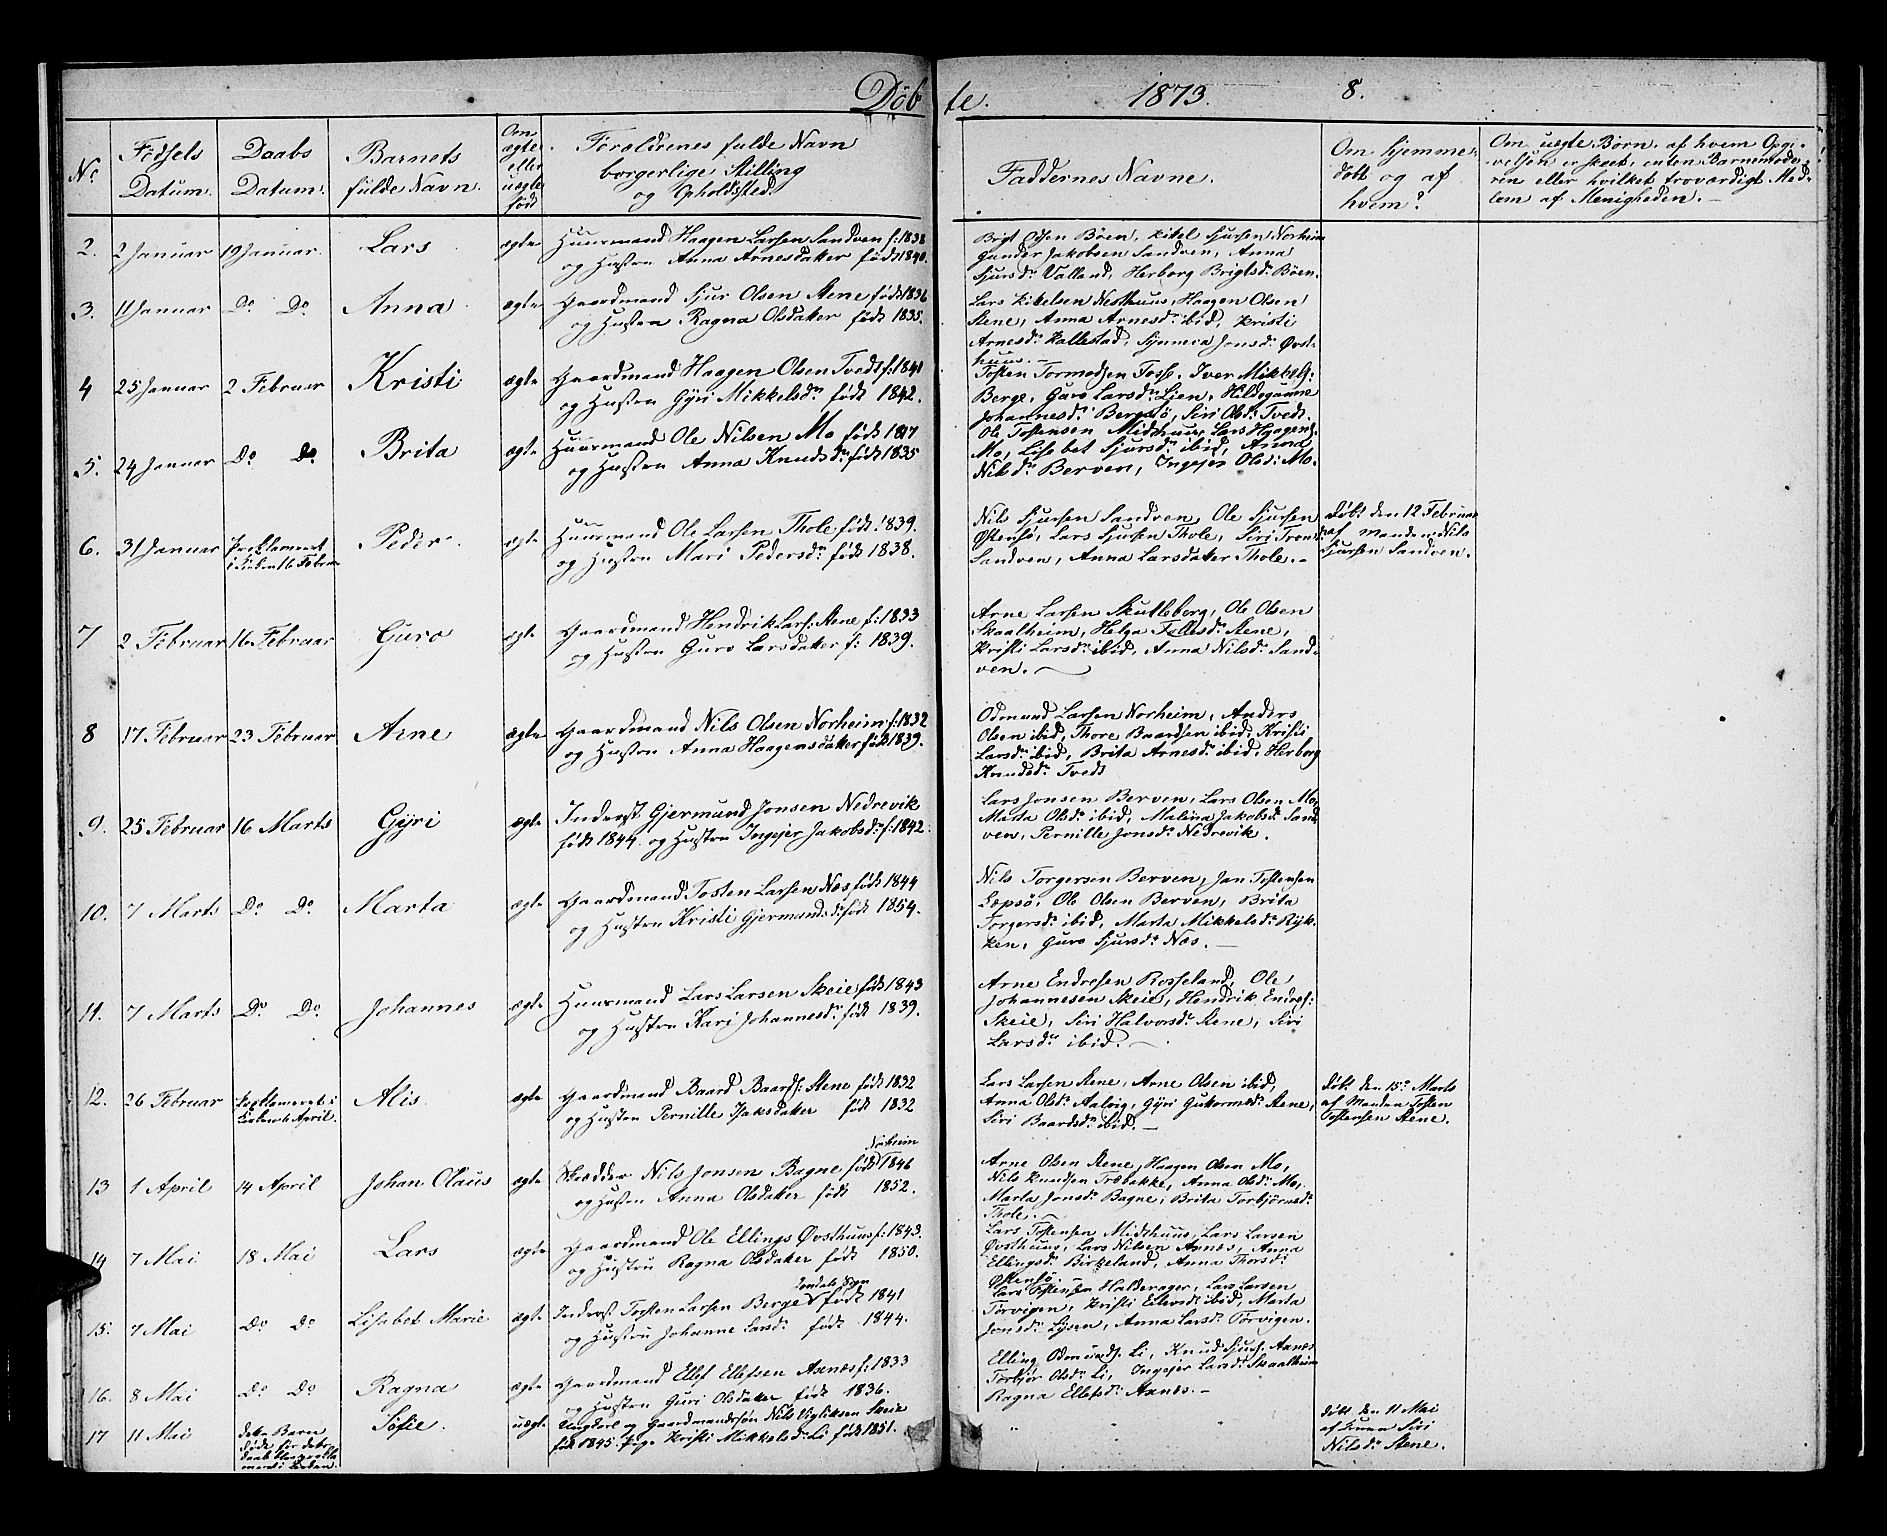 Døbte. 1873. 8.
No
Fødsels Datum.
Daabs Datum.
Barnets fulde Navn.
Om ægte eller uægte født
Forældrenes fulde Navn borgerlige Stilling og Opholdssted.
Faddernes Navne.
Om hjemmedøbt og af hvem?
Om uægte Børn, af hvem Opgivelsen er skeet, enten Barnemoderen eller hvilket troværdigt Medlem af Menigheden.
2. 2 Januar 19 Januar. Lars ægte Huusmand Haagen Larsen Sandven f: 1838
og Hustru Anna Arnesdatter født 1840.
Brigt Olsen Böen, Kitel Sjursen Norheim
Gunder Jakobsen Sandven, Anna
Sjursdr Valland, Herborg Brigtsd. Böen.
3. 11 Januar Do Do Anna ægte Gaardmand Sjur Olsen Stene født 1836
og Hustru Ragna Olsdatter født 1835.
Lars Kitelsen Nesthuus, Haagen Olsen
Stene, Anna Arnesdr ibid, Kristi
Arnesdr Kallestad, Synneva Jonsdr Øvst-
huus.
4 25 Januar 2 Februar Kristi ægte Gaardmand Haagen Olsen Tvedt f: 1841
og Hustru Gyri Mikkelsdr født 1842.
Tosten Tormodsen Fosse, Iver Mikkels:
Berge, Guro Larsdr Lien, Hildegunne
Johannesdr Bergstö, Siri Olsdr Tvedt.
5. 24 Januar Do Do Brita ægte Huusmand Ole Nilsen Mo født 1817
og Hustru Anna Knudsdr født 1835
Ole Tostensen Midthuus, Lars Hgagens:
Mo, Lisabet Sjursdr ibid, Anna
Nilsdr Berven, Ingejer Olsd: Mo.
6. 31 Januar Proklameret i Kirken 16 Februar Peder ægte Huusmand Ole Larsen Thole født 1839.
og Hustru Mari Pedersdr født 1838.
Nils Sjursen Sandven, Ole Sjursen
Østensö, Lars Sjursen Thole, Siri Tronds
Sandven, Anna Larsdatter Thole.
Døbt den 12 Februar
af Manden Nils
Sjursen Sandven.
7 2 Februar 16 Februar Guro ægte Gaardmand Hendrik Lars: Stene f: 1833
og Hustru Guro Larsdatter f: 1839.
Arne Larsen Skutleberg, Ole Olsen
Skaalheim, Helga Tollefsdr Stene,
Kristi Larsdr ibid, Anna Nilsdr Sand-
ven.
8 17 Februar 23 Februar Arne ægte Gaardmand Nils Olsen Norheim f: 1832
og Hustru Anna Haagensdatter født 1839.
Odmund Larsen Norheim, Anders
Olsen ibid, Thore Baardsen ibid, Kristi
Larsdr ibid, Brita Arnesdr ibid, Herborg
Knudsdr Tvedt
9. 25 Februar 16 Marts Gyri ægte Inderst Gjermund Jonsen Nedrevik
født 1844 og Hustru Ingejer Jakobsdr f: 1842.
Lars Jonsen Berven, Lars Olsen Mo,
Marta Olsdr ibid, Malina Jakobsdr Sand
ven, Pernille Jonsdr Nedrevik.
10. 7 Marts Do Do Marta ægte Gaardmand Tosten Larsen Næs født 1844
og Hustru Kristi Gjermundsdr født 1854.
Nils Torgersen Berven, Jan Tostensen
Lepsö, Ole Olsen Berven, Brita
Torgersdr ibid, Marta Mikkelsdr Ryk-
ken, Guro Sjursdr Næs.
11. 7 Marts Do Do Johannes ægte Huusmand Lars Larsen Skeie født 1843
og Hustru Kari Johannesdr født 1839.
Arne Endresen Rosseland, Ole
Johannesen Skeie, Hendrik Endres:
Skeie, Siri Halvorsdr Stene, Siri
Larsdr ibid.
12. 26 Februar Proklameret i Kirken 14 April. Alis. ægte Gaardmand Baard Baards: Stene født 1832
og Hustru Pernille Isaksdatter født 1832
Lars Larsen Stene, Arne Olsen ibid,
Anna Olsdr Aalvig, Gyri Guttormsdr Stene,
Siri Baardsdr ibid.
Døbt den 15de Marts
af Manden Tosten
Tostensen Stene.
13 1 April 14 April Johan Olaus ægte Skrædder Nils Jonsen Bagne Norheim født 1846
og Hustru Anna Olsdatter født 1852.
Arne Olsen Stene, Haagen Olsen Mo,
Nils Knudsen Træbakke, Anna Olsdr Mo,
Marta Jonsdr Bagne, Brita Torbjørnsdr
Thole.
14 7 Mai 18 Mai Lars ægte Gaardmand Ole Ellings Øvsthuus f: 1843.
og Hustru Ragna Olsdatter født 1850.
Lars Tostensen Midthuus, Lars Larsen
Øvsthuus, Lars Nilsen Axnes, Anna
Ellingsdr Birkeland, Anna Thorsdr
Østensö.
15. 7 Mai Do Do Lisabet Marie ægte Inderst Torsten Larsen Berge Jondals Sogn født 1841
og Hustru Johanne Larsdr født 1844.
Lars Tostensen Halderager, Lars Larsen
Torvigen, Kristi Eilevsdr ibid, Marta
Jonsdr Lysen, Anna Larsdr Torvigen.
16. 8 Mai Do Do Ragna ægte Gaardmand Ellef Ellefsen Axnes f: 1833
og Hustru Guri Olsdatter født 1836.
Elling Odmunds. Li, Knud Sjurs. Axnes
Torbjør Olsdr Li, Ingejer Larsdr Skaalheim
Ragna Ellefsdr Axnes.
17 11 Mai dette Barn døde før dets Daab Sofie. uægte Ungkarl og Gaardmandssøn Nils Vigliksen Skeie
født 1845. Pige Kristi Mikkelsdr Li født 1851.
Døbt den 11 Mai
af Konen Siri
Nilsdr Stene.